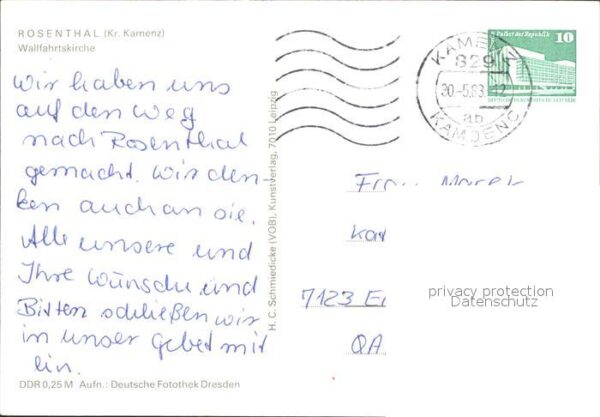 ROSENTHAL (Kr. Kamenz)
Wallfahrtskirche
Wir haben uns
auf den Weg
nach Rosenthal
gemacht. Wir den-
ken auch an sie.
Alle unsere und
Ihre Wünsche und
Bitten schließen wir
in unser Gebet mit
ein.
DDR 0,25 M Aufn.: Deutsche Fotothek Dresden
H. C. Schmiedicke (VOB), Kunstverlag, 7010 Leipzig
Palast der Republik
10
KAMENZ
829
30.-5.83.-12
ab
KAMJENC
7123
QA
privacy protection
Datenschutz